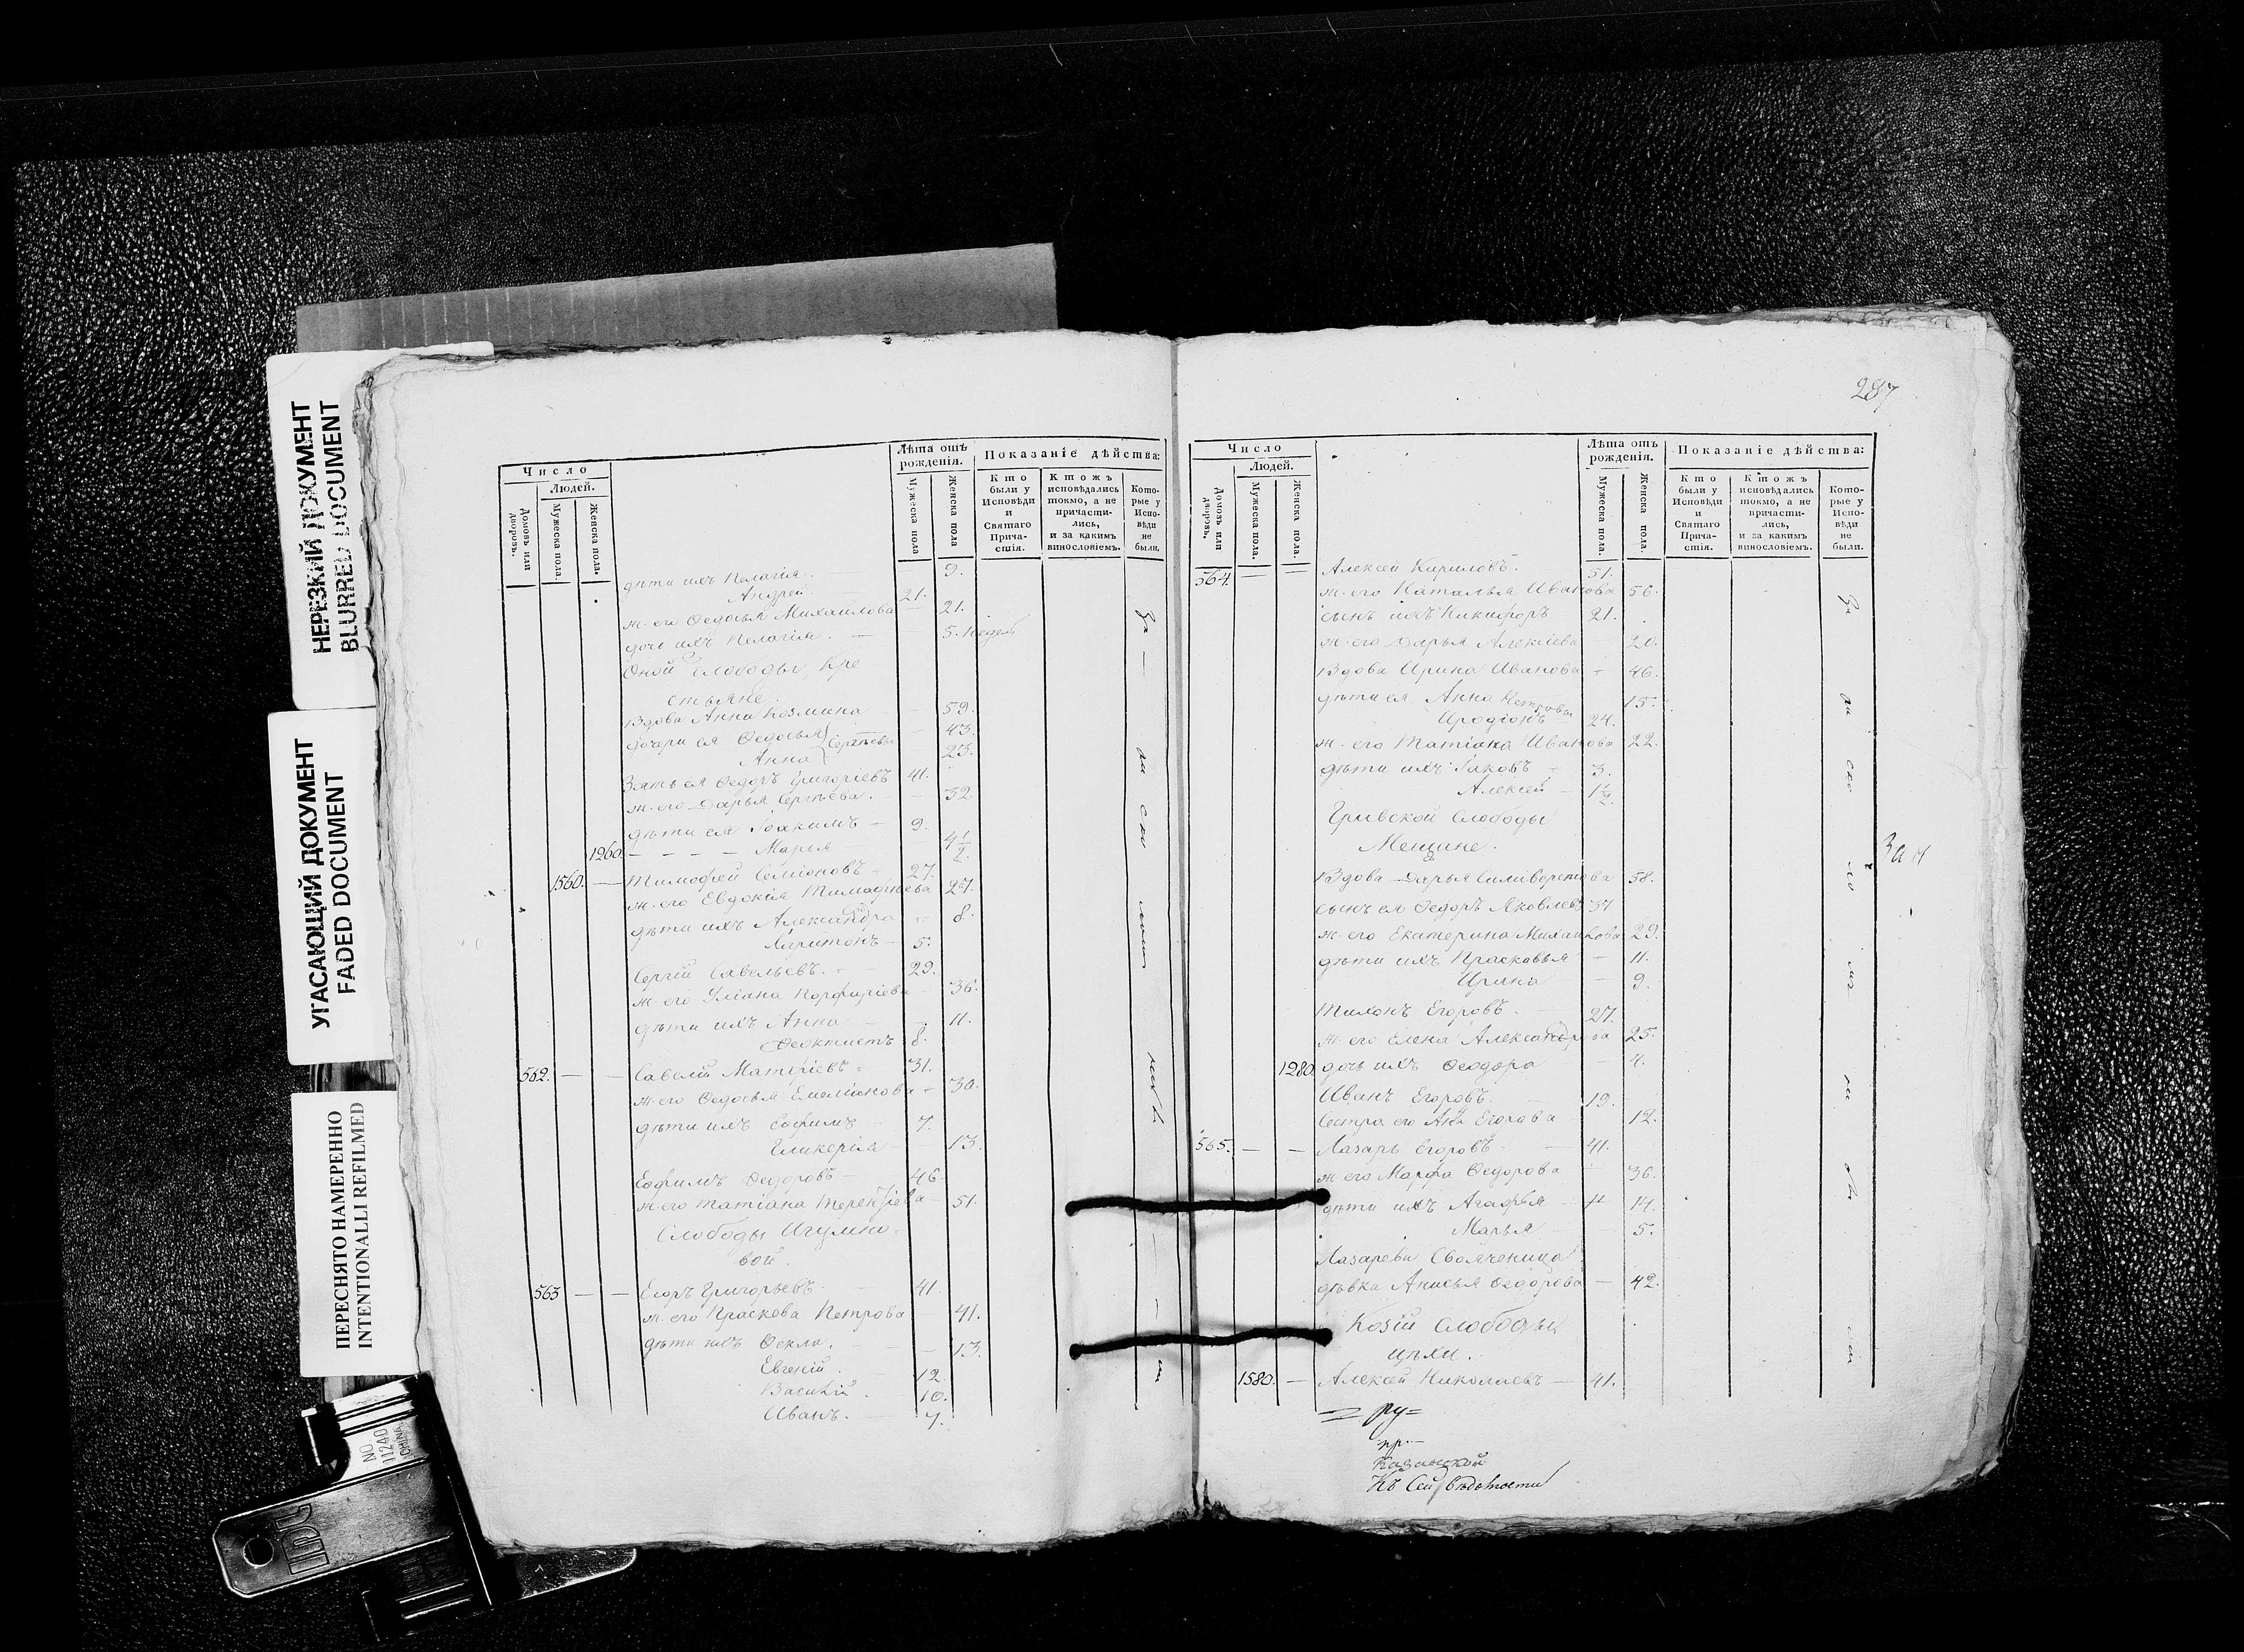 НЕРЕЗКИЙ ДОКУМЕНТ
BLURRED DOCUMENT
УГАСАЮЩИЙ ДОКУМЕНТ
FADED DOCUMENT
ПЕРЕСНЯТО НАМЕРЕННО
INTENTIONALLI REFILMED
NO. 11240
CHINA
Число
Людей.
Домовъ или дворовъ.
Мужеска пола.
Женска пола.
Лѣта отъ рожденія.
Мужеска пола
Женска пола
Показаніе дѣйства:
Кто были у Исповѣди и Святаго Прича-стія.
Ктожъ исповѣдались токмо, а не причасти-лись, и за какимъ винословіемъ.
Кото-рые у Испо-вѣди не были.
дѣти ихъ Пелагія. 9.
Андрей 21.
ж. его Федосья Михайлова 21.
дочь ихъ Пелагія. 5. недел
Оной Слободы, Кре
стьяне.
Вдова Анна Козмина 59.
дочери ея Федосья Сергѣевы 43.
Анна 23.
Зять ея Федоръ Григоріевъ 41.
ж. его Дарья Сергѣева. 32
дѣти ея Іоакимъ 9.
1260. Марья 4 1/2.
1560. Тимофей Семіоновъ 27.
ж. его Евдокія Тимофѣева 27.
дѣти ихъ Александра 8.
Харитонъ 5.
Сергій Савельевъ. 29.
ж. его Уліана Порфиріева 36.
дѣти ихъ Анна 11.
Феоктистъ 8.
562. Савелій Матѳіевъ 31.
ж. его Федосья Емеліанова 30.
дѣти ихъ Евфимъ 7.
Гликерія 13.
Евфимъ Федоровъ 46.
ж. его Татіана Терентіева 51.
Слободы Игумно-
вой.
563 Егоръ Григорьевъ 41
ж. его Праскева Петрова 41.
дѣти ихъ Фекла. 13.
Евгеній. 12.
Василій. 10.
Иванъ. 7.
287
Число
Людей.
Домовъ или дворовъ.
Мужеска пола.
Женска пола.
Лѣта отъ рожденія.
Мужеска пола.
Женска пола.
Показаніе дѣйства:
Кто были у Исповѣди и Святаго Прича-стія.
Ктожъ исповѣдались токмо, а не причасти-лись, и за какимъ винословіемъ.
Кото-рые у Испо-вѣди не были.
564. Алексей Кириловъ. 51.
ж. его Наталья Иванова 56.
сынъ ихъ Никифоръ 21.
ж. его Дарья Алексіева 20.
Вдова Ирина Иванова 46.
дѣти ея Анна Петровы 15.
Иродіонъ 24.
ж. его Татіана Иванова 22.
дѣти ихъ Іаковъ 3.
Алексей 1 1/2.
Гривской Слободы
Мещане.
Вдова Дарья Силиверстова 58.
сынъ ея Федоръ Яковлевъ 37
ж. его Екатерина Михайлова 29.
дѣти ихъ Прасковья 11.
Ирина 9.
Тихонъ Егоровъ. 27.
ж. его Елена Александрова 25.
1280. дочь ихъ Феодора 4.
Иванъ Егоровъ. 19.
Сестра его Анна Егорова 12.
565. Лазарь Егоровъ 41.
ж. его Марфа Федорова 36.
дѣти ихъ Агафья 14.
Марья 5.
Лазарева Свояченица
дѣвка Анисья Федорова 42.
Козій Слободы
цѣхи.
1580. Алексей Николаевъ 41.
ру=
пр.
Казанской
Къ Сей вѣдомости